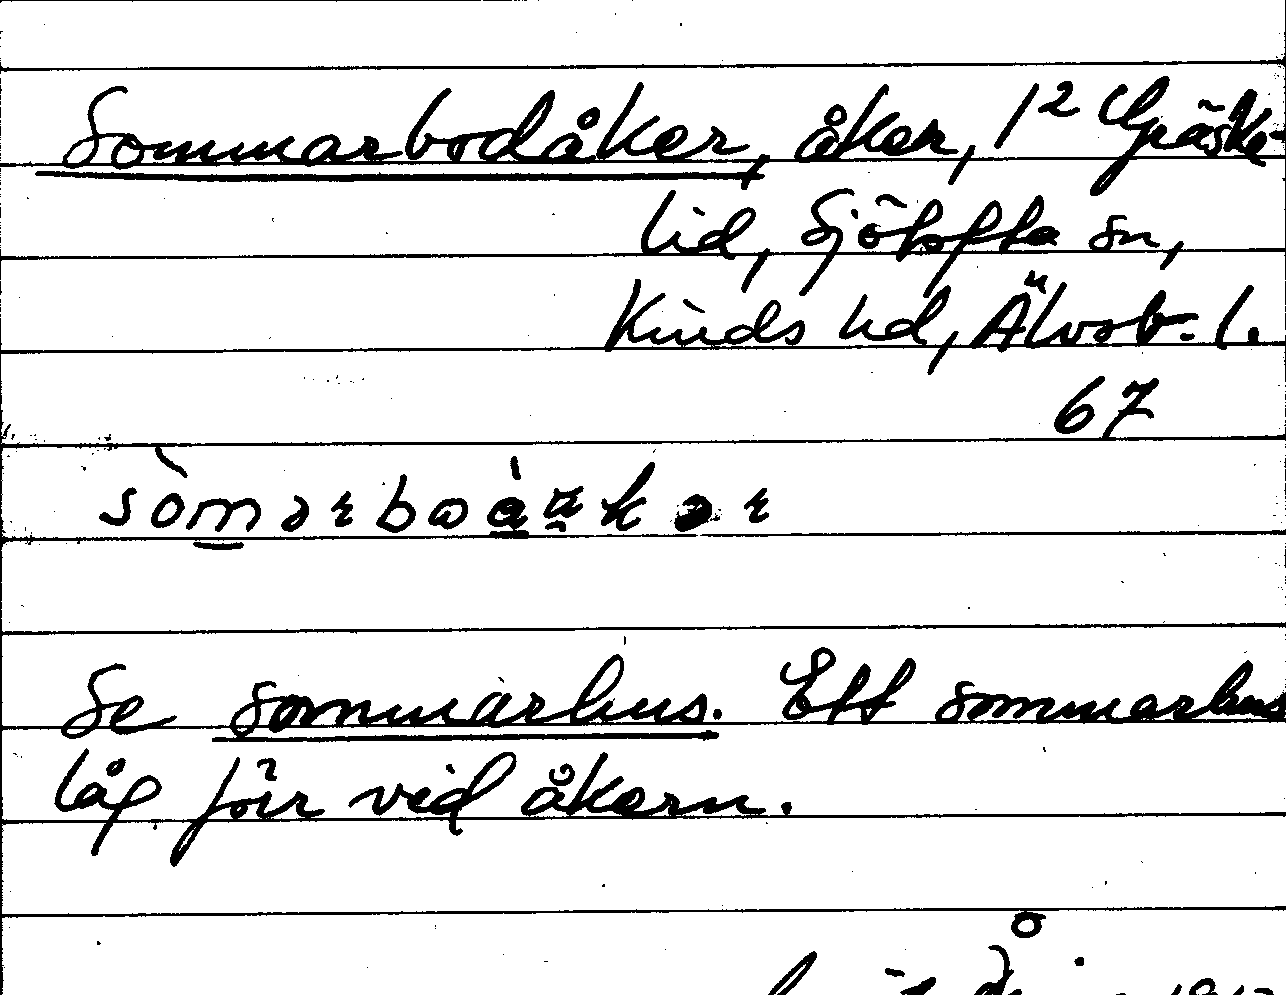 Sommarbodåker, åker, 1² Gräske-
lid, Sjötofta sn,
Kinds hd, Älvsb. l.
67
Se sommarhus. Ett sommarhus
låg förr vid åkern.